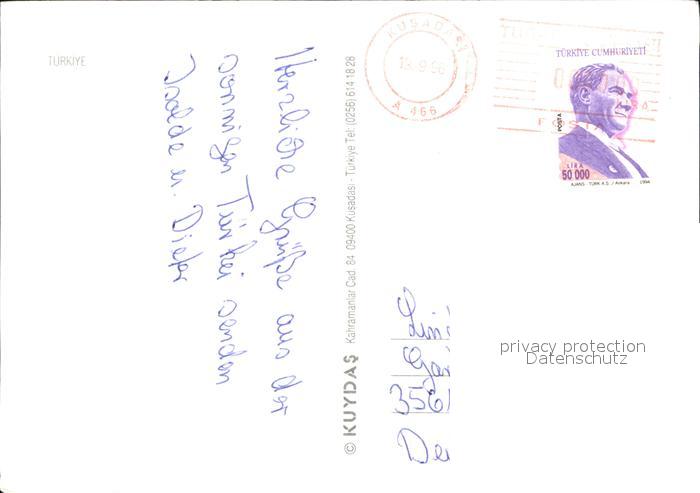 TÜRKIYE
Herzliche Grüße aus der
sonnigen Türkei senden
Isolde u. Dieter
© KUYDAŞ Kahramanlar Cad. 84 09400 Kuşadası - Türkiye Tel: (0256) 614 18 28
KUŞADASI
A 466
TÜRKİYE CUMHURİYETİ
POSTA
LİRA
50 000
AJANS - TÜRK A.Ş. / Ankara 1994
privacy protection
Datenschutz
Gär
356
De